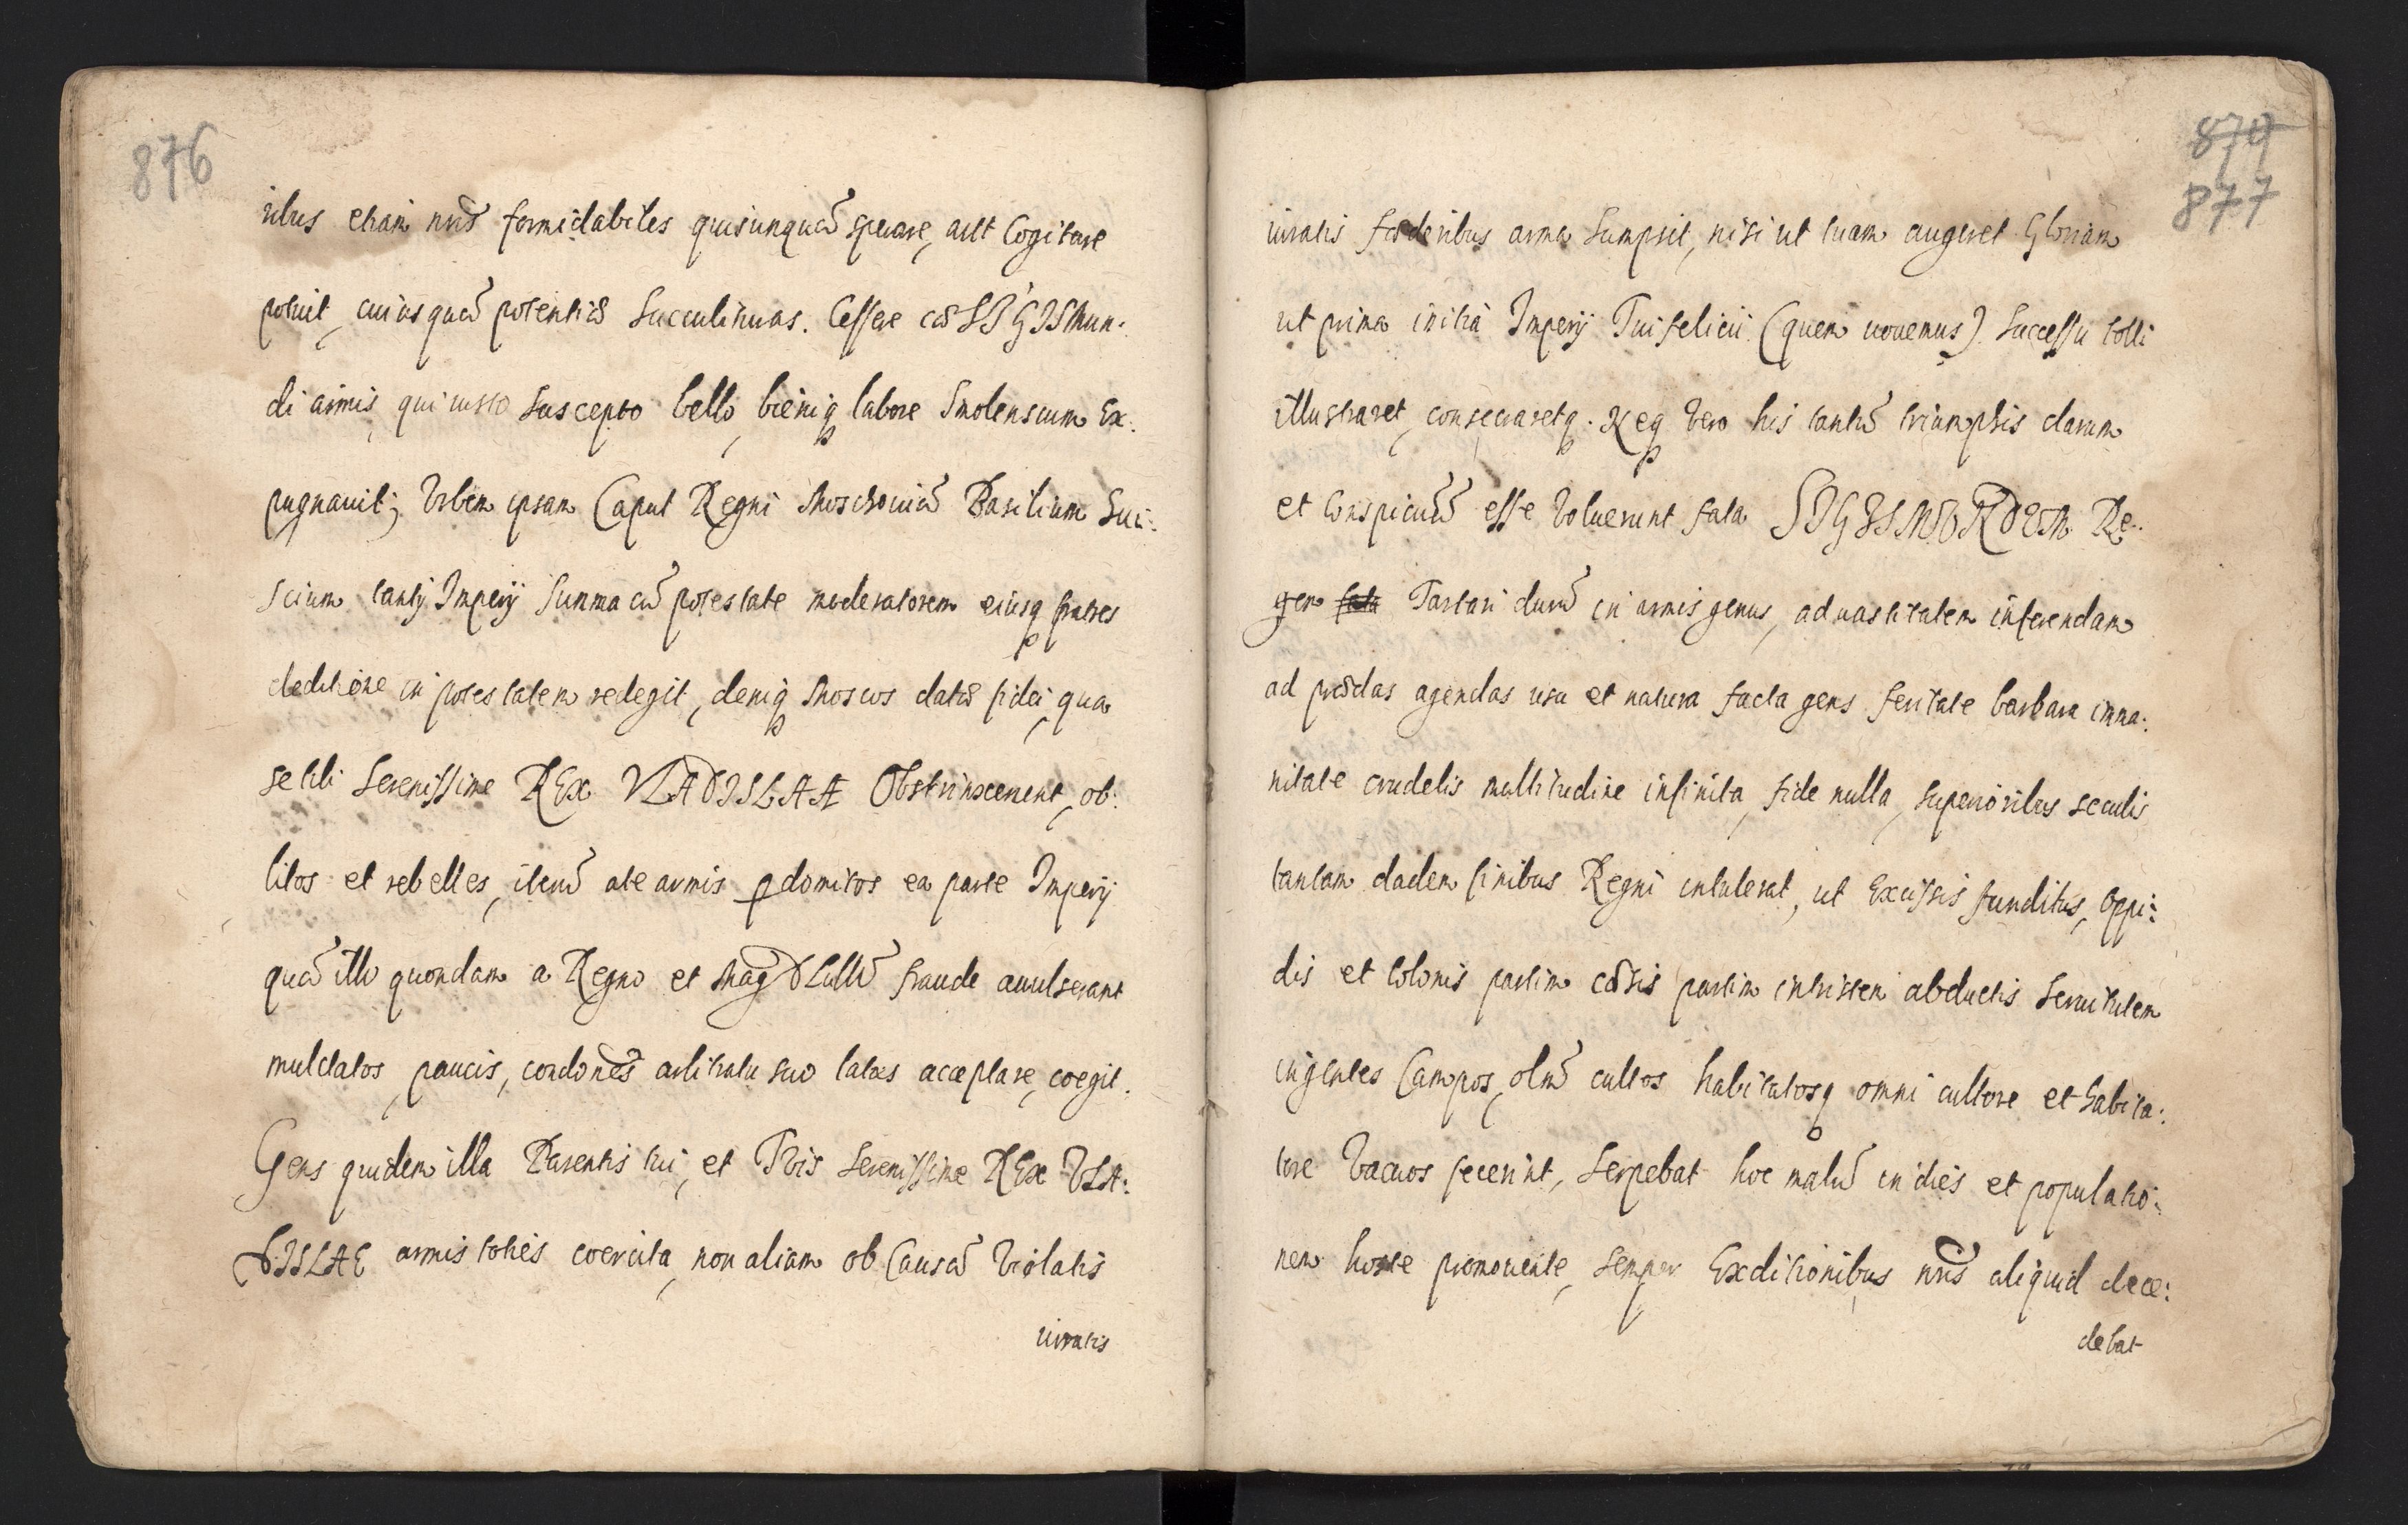 876
ribus etiam nris formidabiles quisunqua sperare, aut Cogitare
potuit, cuiusquam potentiæ Succubituras. Cessere eæ SIGISmun:
di armis, qui iusto suscepto bello, bieniq labore Smolenscum Ex:
pugnauit; Vrbem ipsam Caput Regni Moschouiæ Basilium Sui:
scium tanti Imperij Summa cũ potestate moderatorem eiusq fratres
deditione in potestatem redegit, deniq Moscos datæ fidei, qua
se tibi Serenissime REx VLADISLAE Obstrinxerunt, ob:
litos et rebelles, iterũ ate armis pdomitos ea parte Imperij
quã illi quondam a Regno et Mag D Litt fraude auulserant
mulctatos, pacis, condones arbitratu suo latas acceptare, coegit.
Gens quidem illa Parentis tui, et Tuis Serenissime REx VLA:
DISLAE armis toties coercita, non aliam ob Causã Violatis
iuratis
879
877
iuratis fæderibus arma Sumpsit, nisi ut tuam augeret Gloriam
ut prima initia Imperij Tui felicii (quem uouemus) Successu tolli
illustraret, consecraretq. Neq Vero his tantũ triumphis clarum
et Conspicuũ esse Voluerunt fata SIGISMVNDVM Re:
gem Tartari durũ in armis genus, ad uastitatem inferendam
ad prædas agendas usu et natura facta gens feritate barbara imma:
nitate crudelis multitudine infinita, fide nulla, superioribus seculis
tantam cladem finibus Regni intulerat, ut Excissis funditus, Oppi:
dis et Colonis partim cæsis partim intristem abductis Seruitutem
ingentes Campos, olim cultos habitatosq omni cultore et habita:
tore Vacuos fecerint, Serpebat hoc malũ in dies et populatio:
nem hoste promouente, semper Exditionibus nris aliquid dece:
debat